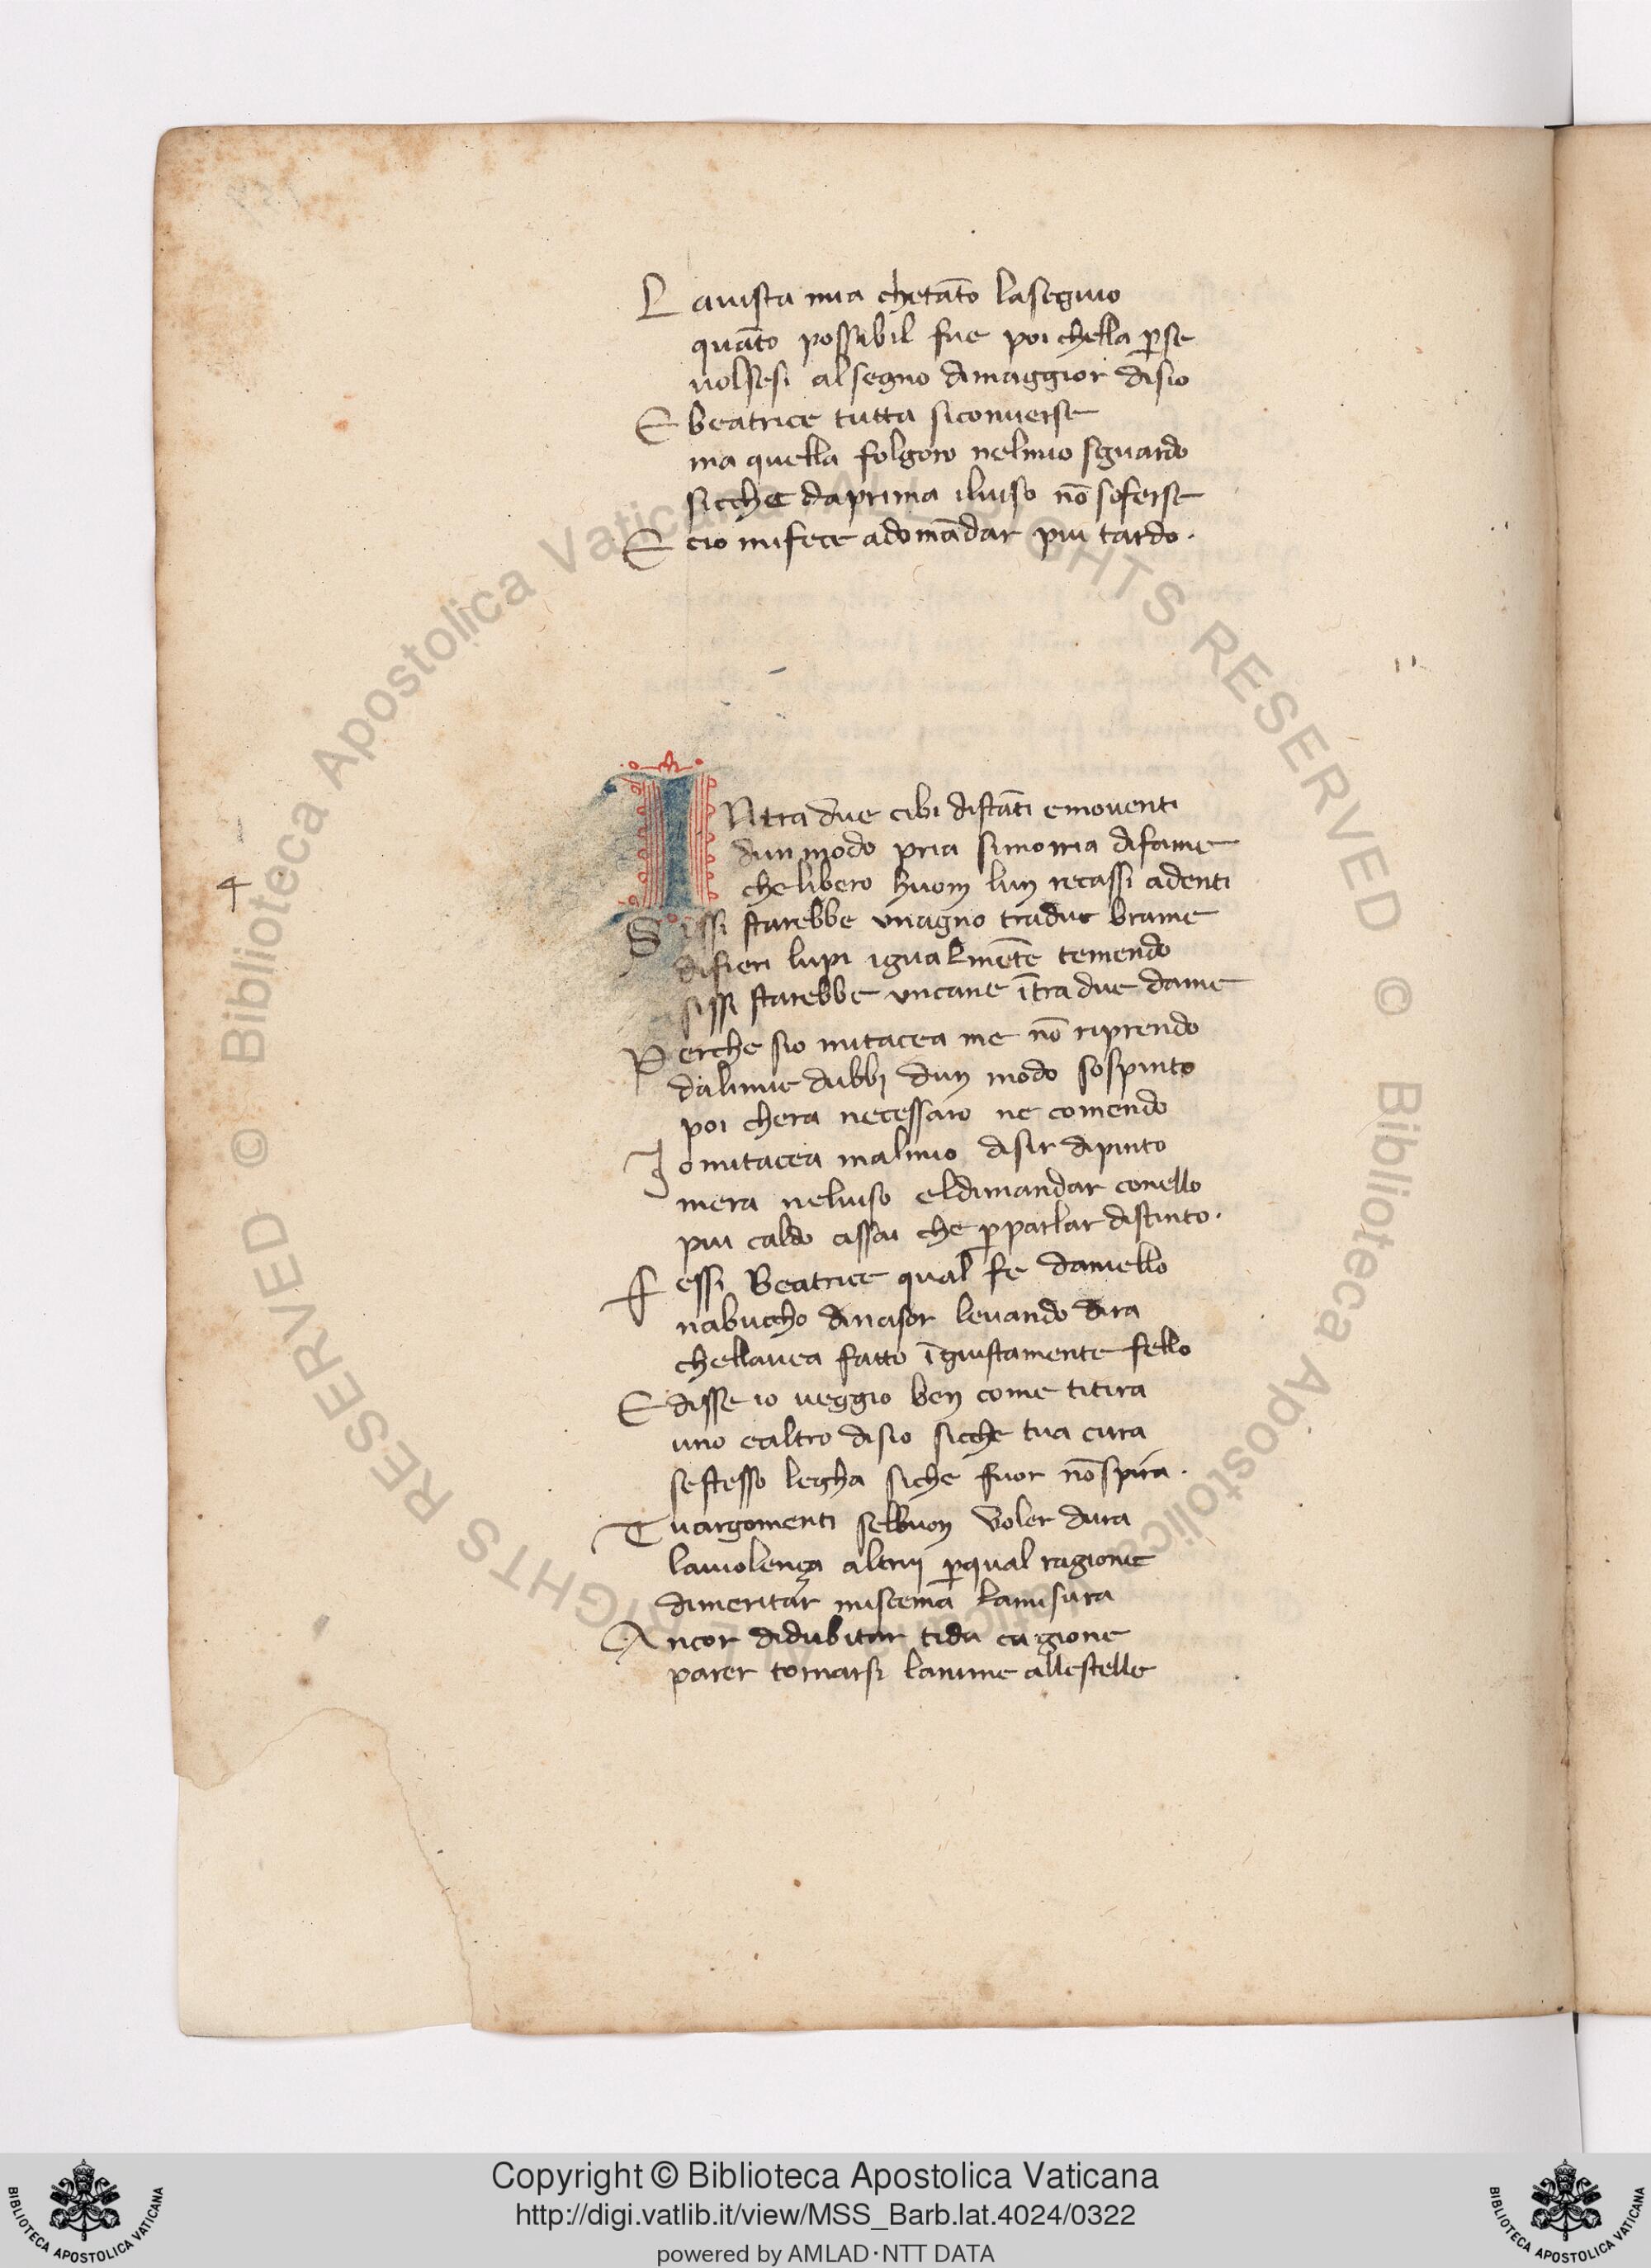 L auista mia chetāto laseguio
quāto possibil fue poi chella ꝑse
uolsesi alsegno dimaggior disio
E beatrice tutta siconuerse
ma quella folgoro nelmio sguardo
sicche daprima iluiso nō soferse
E cio mifece adomādar piu tardo.
INtra due cibi distāti emouenti
dun modo pria simoria difame
chelibero huom lun recassi adenti
Sissi starebbe unagno tradue brame
difieri lupi igualmēte temendo
sissi starebbe uncane ītra due dame
Perche sio mitacea me nō riprendo
dalimie dubbi dun modo sospinto
poi chera necessaro ne comendo
Io mitacea malmio disir dipinto
mera neluiso eldimandar conello
piu caldo assai che ꝑparlar distinto.
Fessi Beatrice qual fe daniello
nabuccho dinasor leuando dira
chellauea fatto īgiustamente fello
E disse io ueggio ben come titira
uno ealtro disio sicche tua cura
sestesso legha siche fuor nō spira.
Tuargomenti selbuon uoler dura
lauiolença altrui ꝑqual ragione
dimeritar miscema lamisura
Ancor didubitar tida cagione
parer tornarsi lanime allestelle
4
Biblioteca Apostolica Vaticana © ALL RIGHTS RESERVED
Copyright © Biblioteca Apostolica Vaticana
http://digi.vatlib.it/view/MSS_Barb.lat.4024/0322
powered by AMLAD·NTT DATA
BIBLIOTECA APOSTOLICA VATICANA
BIBLIOTECA APOSTOLICA VATICANA